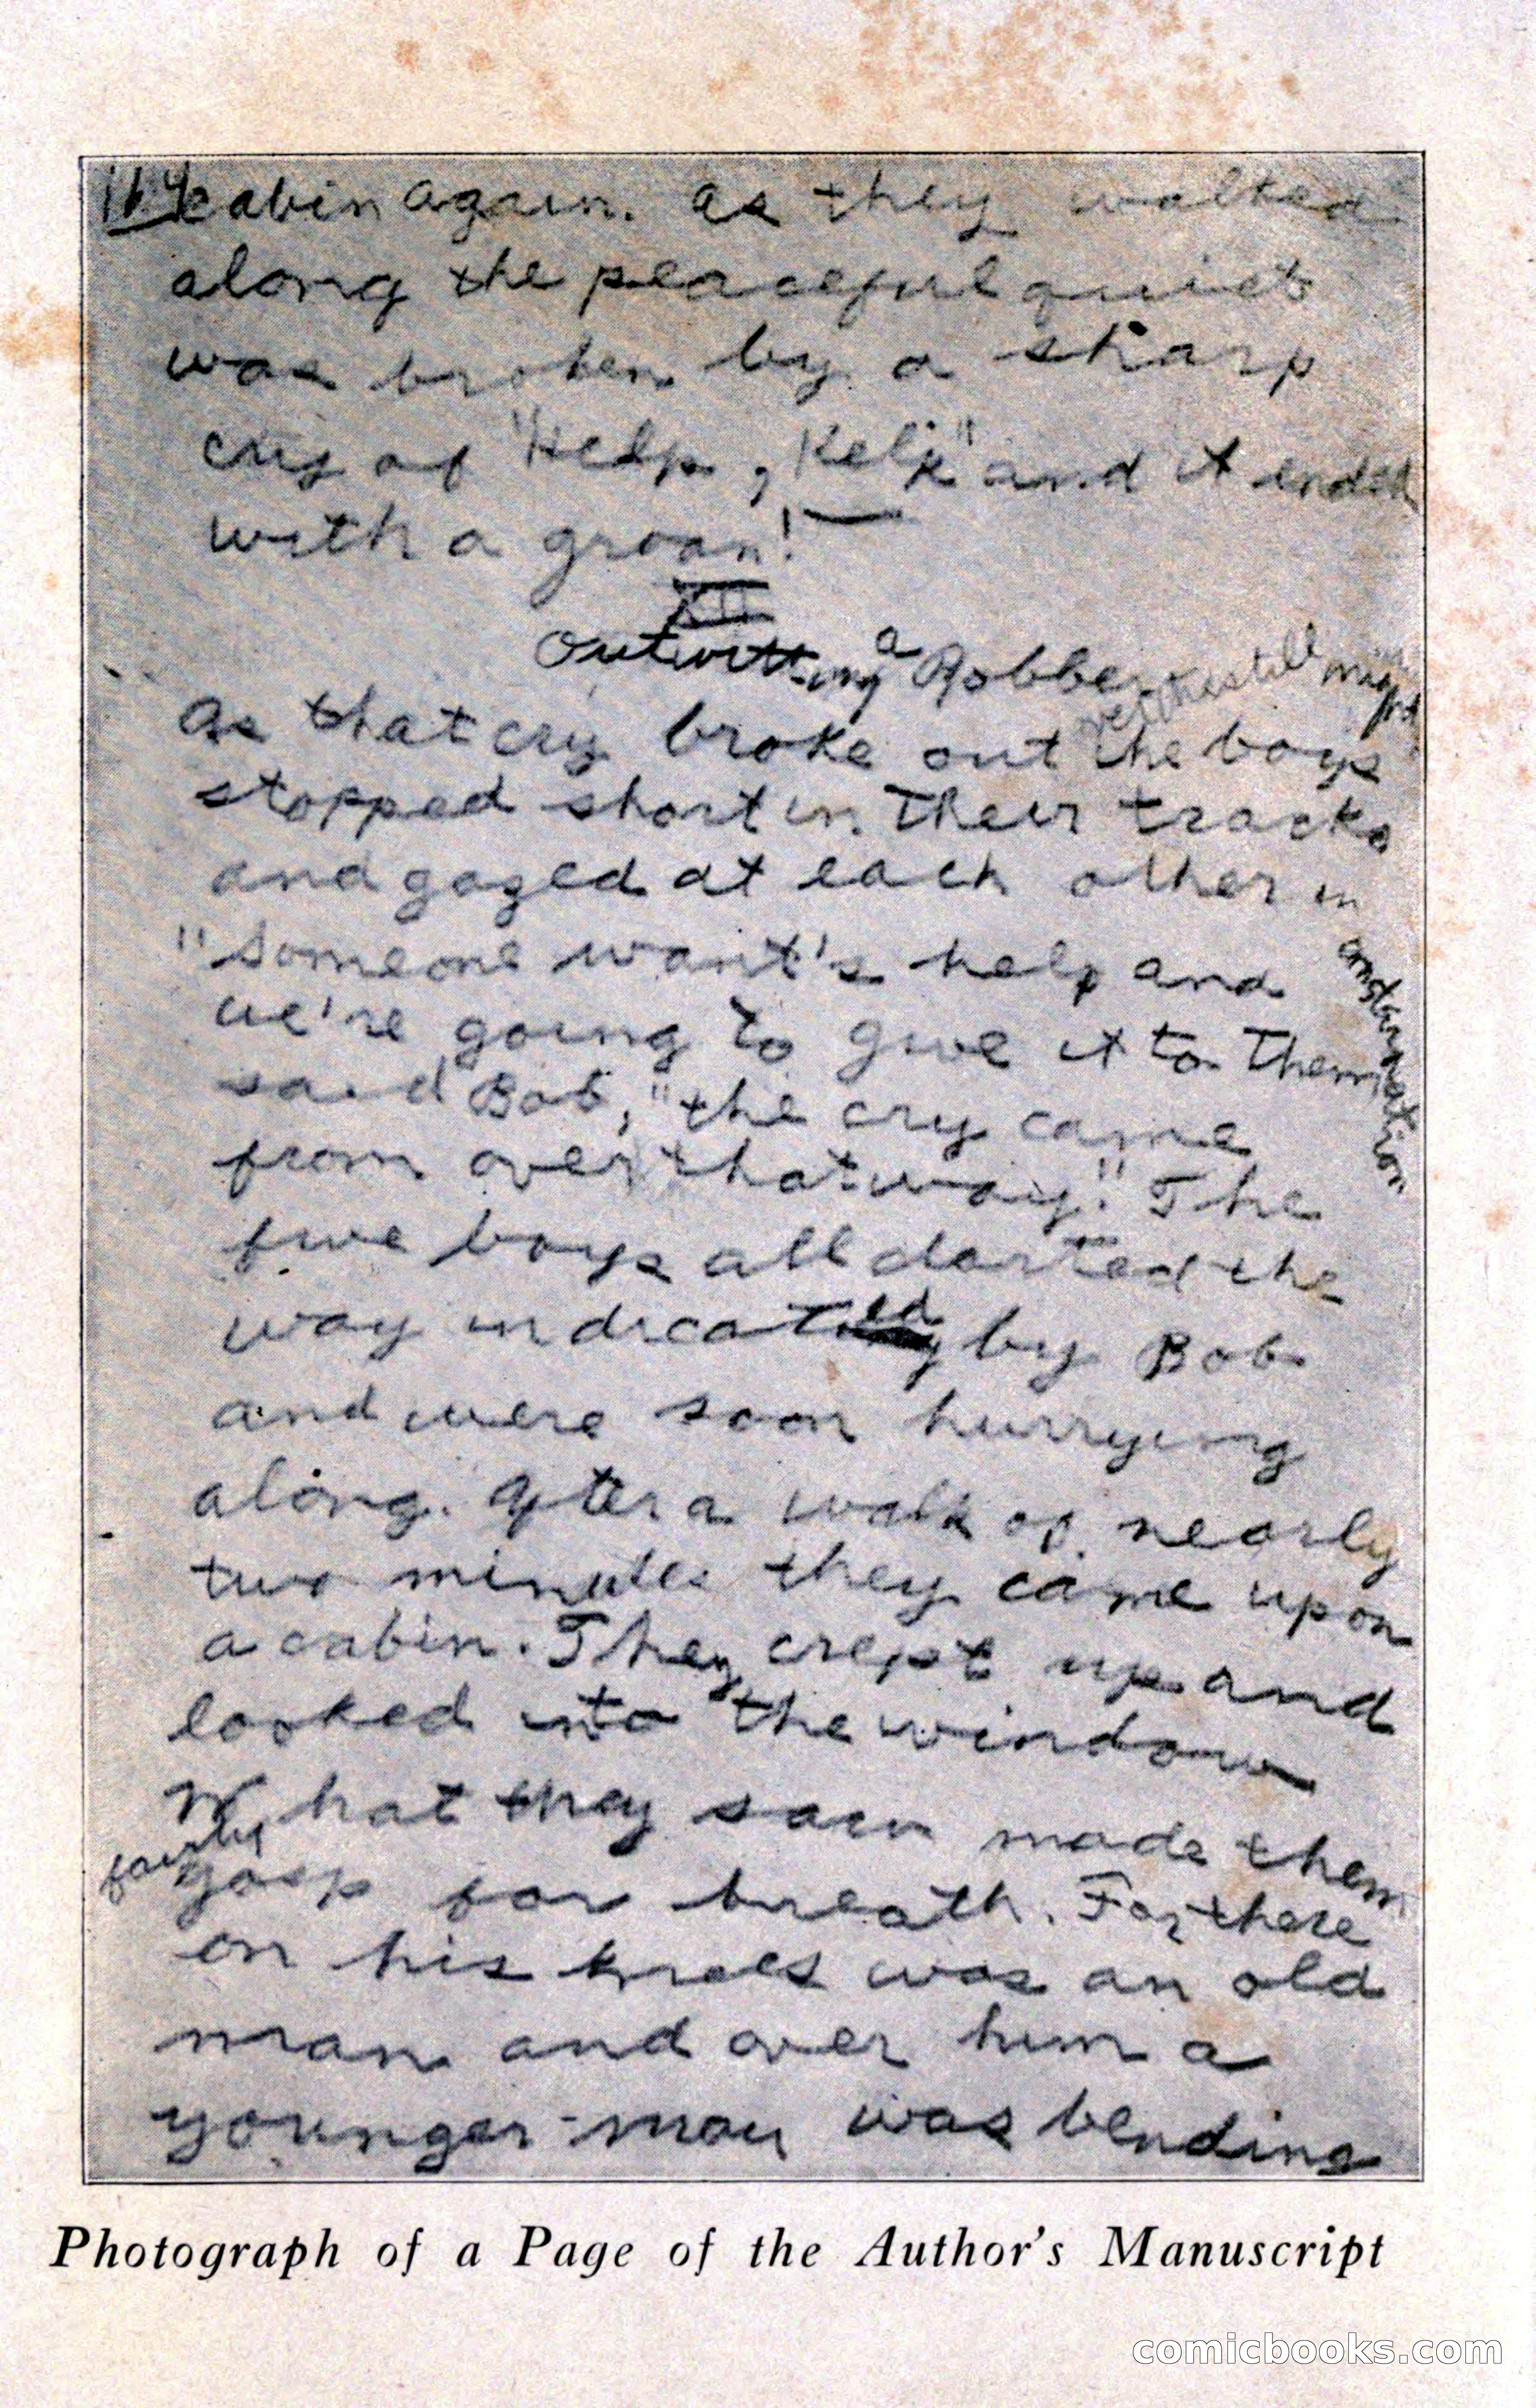 cabin again. As they walked
along the peaceful quiet
was broken by a sharp
cry of "Help, Help" and it ended
with a groan! —
XII
Outwitting a Robber
still might
As that cry broke out the boys
stopped short in their tracks
and gazed at each other in
consternation
"Someone want's help and
we're going to give it to them
said Bob, "the cry came
from over that way." The
five boys all darted the
way indicated by Bob
and were soon hurrying
along. After a walk of nearly
two minutes they came upon
a cabin. They crept up and
looked into the window
What they saw made them
fairly
gasp for breath. For there
on his knees was an old
man and over him a
younger man was bending
Photograph of a Page of the Author's Manuscript
comicbooks.com